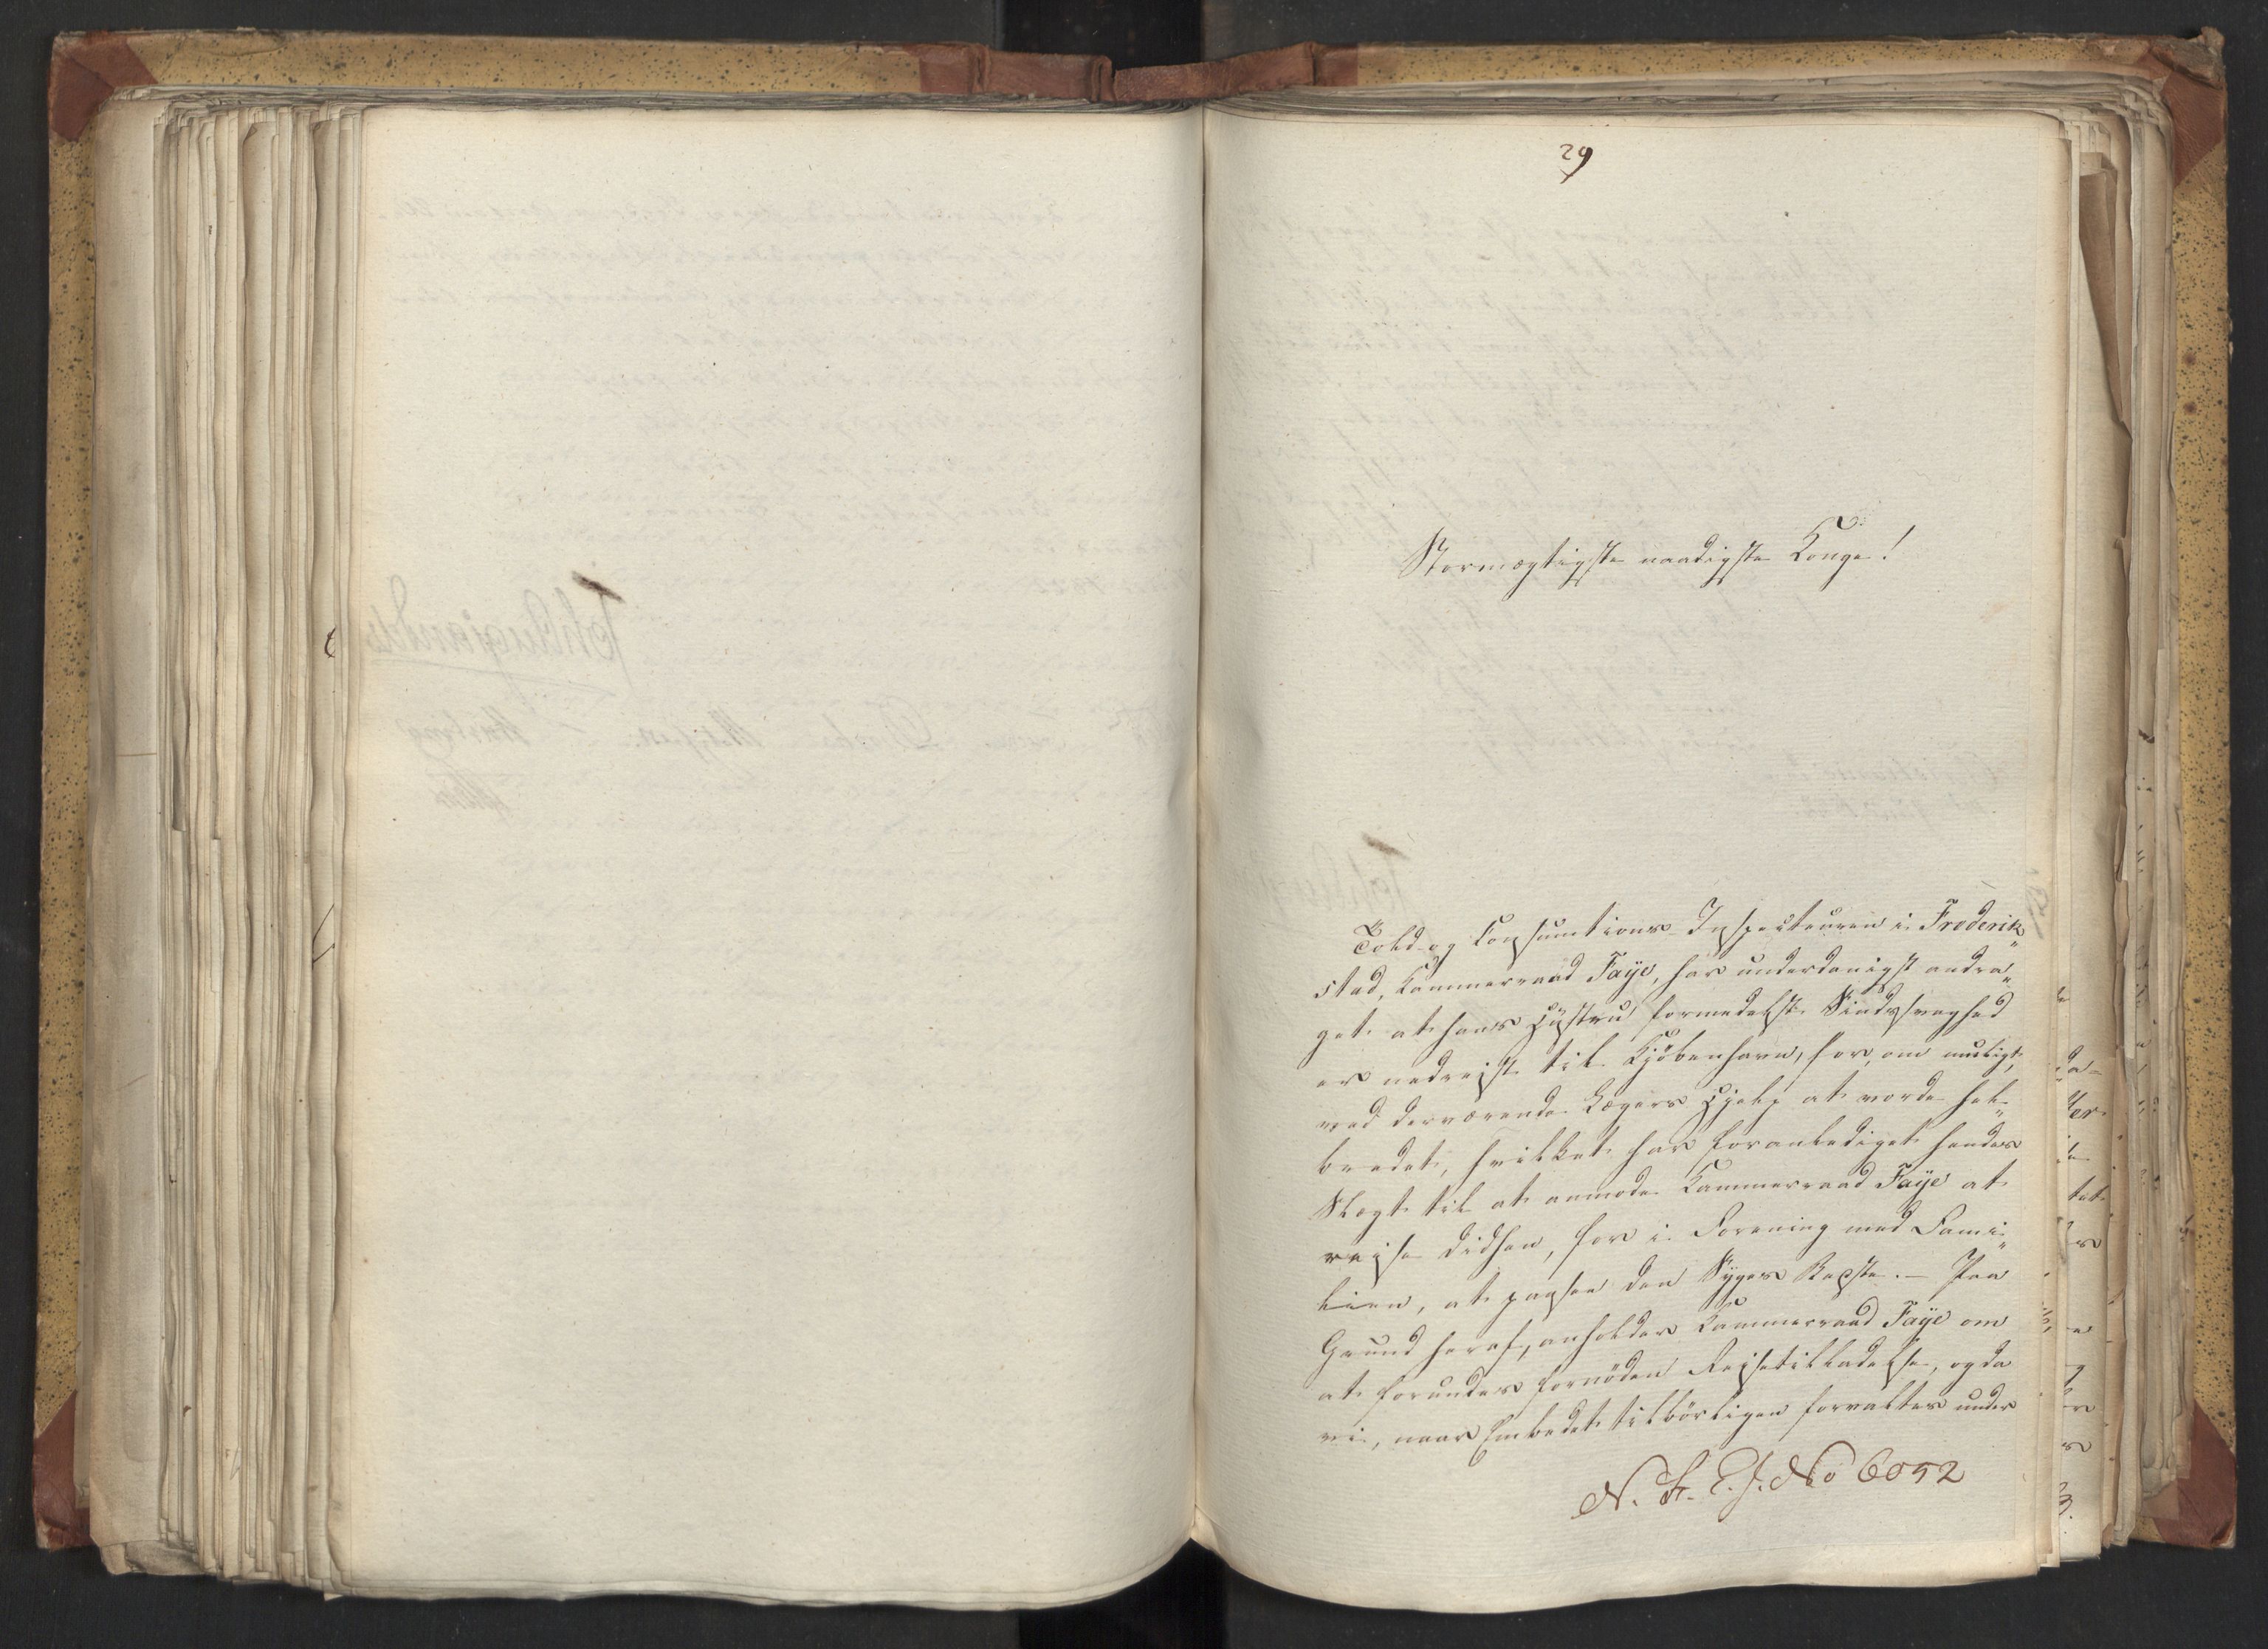 29
Stormægtigste naadigste Konge!
Told- og Consumtions-Inspecteuren i Frederik„
stad, Kammerraad Faÿe, har underdanigst andra„
get at hans Hüstru formedelst Sindssvaghed
er nedreist til Kjöbenhavn, for, om muligt,
ved derværende Lægers Hjelp at vorde hel„
bredet, hvilket har foranlediget hendes
Slægt til at anmode Kammerraad Faÿe at
reise didhen, for i Forening med Fami„
lien, at paasee den Syges Bedste. — Paa
Grund heraf, anholder Kammerraad Faÿe om
at forundes fornöden Reisetilladelse, og da
vi, naar Embedet tilbörligen forvaltes under
N. F. C. J. No 6052